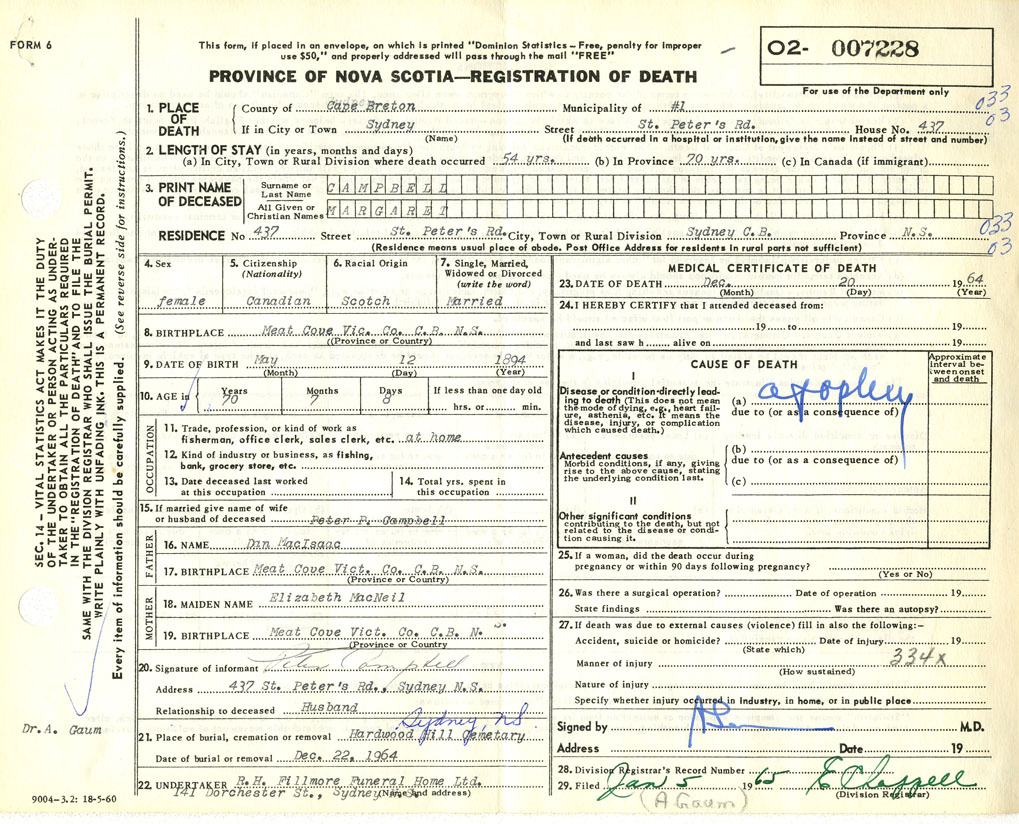 FORM 6
This form, if placed in an envelope, on which is printed "Dominion Statistics – Free, penalty for improper
use $50," and properly addressed will pass through the mail "FREE"
PROVINCE OF NOVA SCOTIA—REGISTRATION OF DEATH
O2- 007228
For use of the Department only
SEC. 14 – VITAL STATISTICS ACT MAKES IT THE DUTY
OF THE UNDERTAKER OR PERSON ACTING AS UNDER-
TAKER TO OBTAIN ALL THE PARTICULARS REQUIRED
IN THE "REGISTRATION OF DEATH" AND TO FILE THE
SAME WITH THE DIVISION REGISTRAR WHO SHALL ISSUE THE BURIAL PERMIT.
WRITE PLAINLY WITH UNFADING INK. THIS IS A PERMANENT RECORD.
Every item of information should be carefully supplied. (See reverse side for instructions.)
Dr. A. Gaum
9004–3.2: 18-5-60
1. PLACE OF DEATH
County of Cape Breton Municipality of #1
033
03
If in City or Town Sydney Street St. Peter's Rd. House No. 437
(Name) (If death occurred in a hospital or institution, give the name instead of street and number)
2. LENGTH OF STAY (in years, months and days)
(a) In City, Town or Rural Division where death occurred 54 yrs. (b) In Province 70 yrs. (c) In Canada (if immigrant)
3. PRINT NAME OF DECEASED
Surname or Last Name CAMPBELL
All Given or Christian Names MARGARET
RESIDENCE No 437 Street St. Peter's Rd. City, Town or Rural Division Sydney C.B. Province N.S.
033
03
(Residence means usual place of abode. Post Office Address for residents in rural parts not sufficient)
4. Sex
female
5. Citizenship
(Nationality)
Canadian
6. Racial Origin
Scotch
7. Single, Married,
Widowed or Divorced
(write the word)
Married
8. BIRTHPLACE Meat Cove Vic. Co. C.B. N.S.
((Province or Country)
9. DATE OF BIRTH May 12 1894
(Month) (Day) (Year)
10. AGE in
Years 70
Months 7
Days 8
If less than one day old
hrs. or min.
OCCUPATION
11. Trade, profession, or kind of work as
fisherman, office clerk, sales clerk, etc. at home
12. Kind of industry or business, as fishing,
bank, grocery store, etc.
13. Date deceased last worked
at this occupation
14. Total yrs. spent in
this occupation
15. If married give name of wife
or husband of deceased Peter P. Campbell
FATHER
16. NAME Dan MacIsaac
17. BIRTHPLACE Meat Cove Vict. Co. C.B. N.S.
(Province or Country)
MOTHER
18. MAIDEN NAME Elizabeth MacNeil
19. BIRTHPLACE Meat Cove Vict. Co. C.B. N.S.
(Province or Country
20. Signature of informant Peter Campbell
Address 437 St. Peter's Rd., Sydney N.S.
Relationship to deceased Husband
Sydney, NS
21. Place of burial, cremation or removal Hardwood Hill Cemetary
Date of burial or removal Dec. 22, 1964
22. UNDERTAKER R.H. Fillmore Funeral Home Ltd.
141 Dorchester St., Sydney
(Name and address)
MEDICAL CERTIFICATE OF DEATH
23. DATE OF DEATH Dec. 20 1964
(Month) (Day) (Year)
24. I HEREBY CERTIFY that I attended deceased from:
19 to 19
and last saw h alive on 19
CAUSE OF DEATH
Approximate
interval be-
tween onset
and death
I
Disease or condition directly lead-
ing to death (This does not mean
the mode of dying, e.g., heart fail-
ure, asthenia, etc. It means the
disease, injury, or complication
which caused death.)
(a)
due to (or as a consequence of)
Antecedent causes
Morbid conditions, if any, giving
rise to the above cause, stating
the underlying condition last.
(b)
due to (or as a consequence of)
(c)
II
Other significant conditions
contributing to the death, but not
related to the disease or condi-
tion causing it.
25. If a woman, did the death occur during
pregnancy or within 90 days following pregnancy?
(Yes or No)
26. Was there a surgical operation? Date of operation 19
State findings Was there an autopsy?
27. If death was due to external causes (violence) fill in also the following:–
Accident, suicide or homicide? Date of injury 19
(State which)
334x
Manner of injury
(How sustained)
Nature of injury
Specify whether injury occurred in industry, in home, or in public place
Signed by M.D.
Address Date 19
28. Division Registrar's Record Number
29. Filed Jan 5 1965
(Division Registrar)
(A Gaum)